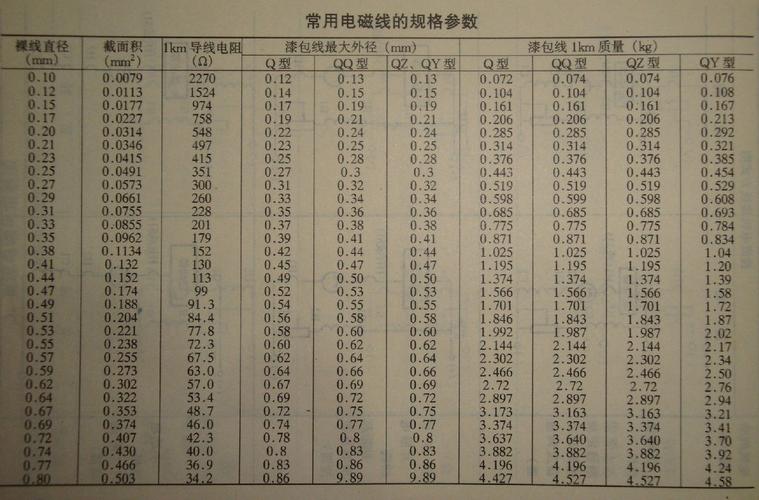 常用电磁线的规格参数
裸线直径 截面积 1km导线电阻 漆包线最大外径（mm） 漆包线1km质量（kg）
（mm） （mm²） （Ω） Q型 QQ型 QZ、QY型 Q型 QQ型 QZ型 QY型
0.10 0.0079 2270 0.12 0.13 0.13 0.072 0.074 0.074 0.076
0.12 0.0113 1524 0.14 0.15 0.15 0.104 0.104 0.104 0.108
0.15 0.0177 974 0.17 0.19 0.19 0.161 0.161 0.161 0.167
0.17 0.0227 758 0.19 0.21 0.21 0.206 0.206 0.206 0.213
0.20 0.0314 548 0.22 0.24 0.24 0.285 0.285 0.285 0.292
0.21 0.0346 497 0.23 0.25 0.25 0.314 0.314 0.314 0.321
0.23 0.0415 415 0.25 0.28 0.28 0.376 0.376 0.376 0.385
0.25 0.0491 351 0.27 0.3 0.3 0.443 0.443 0.443 0.454
0.27 0.0573 300 0.31 0.32 0.32 0.519 0.519 0.519 0.529
0.29 0.0661 260 0.33 0.34 0.34 0.598 0.599 0.598 0.608
0.31 0.0755 228 0.35 0.36 0.36 0.685 0.685 0.685 0.693
0.33 0.0855 201 0.37 0.38 0.38 0.775 0.775 0.775 0.784
0.35 0.0962 179 0.39 0.41 0.41 0.871 0.871 0.871 0.834
0.38 0.1134 152 0.42 0.44 0.44 1.025 1.025 1.025 1.04
0.41 0.132 130 0.45 0.47 0.47 1.195 1.195 1.195 1.20
0.44 0.152 113 0.49 0.50 0.50 1.374 1.374 1.374 1.39
0.47 0.174 99 0.52 0.53 0.53 1.566 1.566 1.566 1.58
0.49 0.188 91.3 0.54 0.55 0.55 1.701 1.701 1.701 1.72
0.51 0.204 84.4 0.56 0.58 0.58 1.846 1.843 1.843 1.87
0.53 0.221 77.8 0.58 0.60 0.60 1.992 1.987 1.987 2.02
0.55 0.238 72.3 0.60 0.62 0.62 2.144 2.144 2.144 2.17
0.57 0.255 67.5 0.62 0.64 0.64 2.302 2.302 2.302 2.34
0.59 0.273 63.0 0.64 0.66 0.66 2.466 2.466 2.466 2.50
0.62 0.302 57.0 0.67 0.69 0.69 2.72 2.72 2.72 2.76
0.64 0.322 53.4 0.69 0.72 0.72 2.897 2.897 2.897 2.94
0.67 0.353 48.7 0.72 0.75 0.75 3.173 3.163 3.163 3.21
0.69 0.374 46.0 0.74 0.77 0.77 3.374 3.374 3.374 3.41
0.72 0.407 42.3 0.78 0.8 0.8 3.637 3.640 3.640 3.70
0.74 0.430 40.0 0.8 0.83 0.83 3.882 3.882 3.882 3.92
0.77 0.466 36.9 0.83 0.86 0.86 4.196 4.196 4.196 4.24
0.80 0.503 34.2 0.86 9.89 9.89 4.427 4.527 4.527 4.58